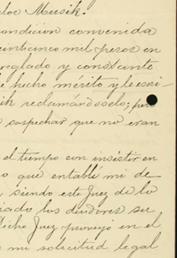 los Mussik.
condición convenida
veinticinco mil pesos en
arreglado y constante
hecho mérito, y le escri
sik reclamándoselo; pero
sospechar que no eran
el tiempo con insistir en
que entablé mi de
siendo este Juez de lo
los deudores su
dicho Juez proveyó en el
mi solicitud legal